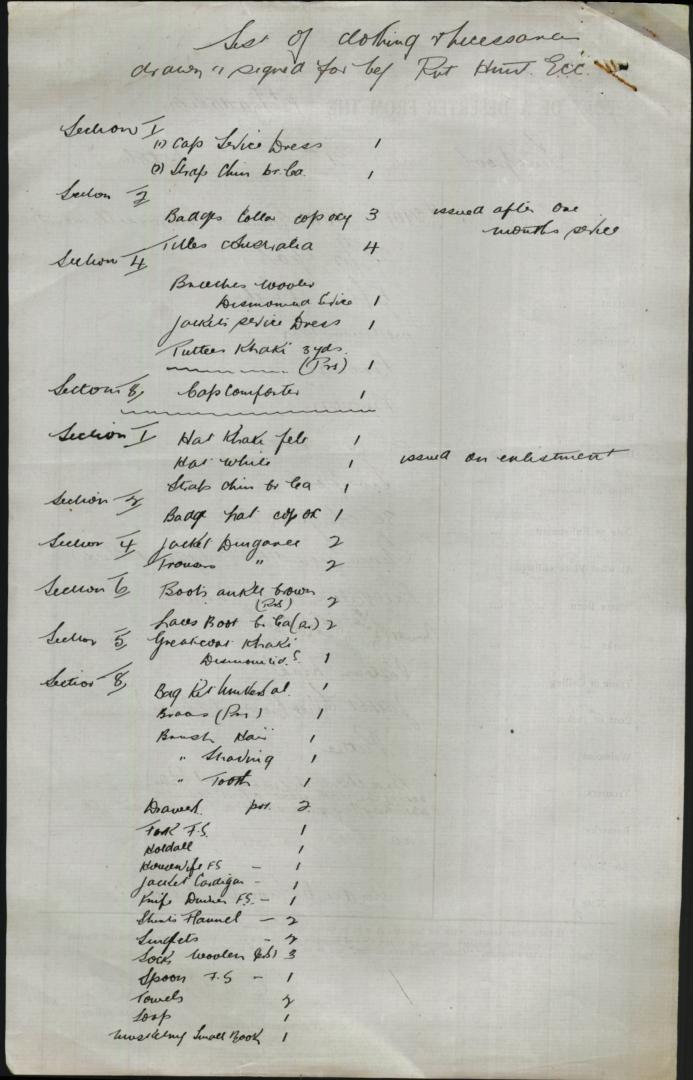 List of clothing & necessaries
drawn & signed for by Pvt Hunt. E.C.C.
Section 1
(1) Cap Service Dress 1
(2) Strap Chin br La. 1
Section 2
Badges Collar cop oxy 3 issued after one
months service
Titles Australia 4
Section 4
Breeches woolen
Dismounted Service 1
Jackets Service Dress 1
Puttees Khaki 3 yds.
(Prs) 1
Section 8, Cap Comforter 1
Section 1 Hat Khaki felt 1
Hat White 1 issued on enlistment
Straps chin br La 1
Section 2
Badge hat cop ox 1
Section 4 Jacket Dungaree 2
Trousers " 2
Section 6 Boots ankle brown
(Prs) 2
Laces Boot br La (prs) 2
Section 5 Greatcoat Khaki
Dismounted. S 1
Section 8, Bag Kit Universal 1
Braces (Prs) 1
Brush Hair 1
" Shaving 1
" Tooth 1
Drawers prs. 2
Fork F.S. 1
Holdall 1
Housewife FS - 1
Jacket Cardigan - 1
Knife Dinner F.S. - 1
Shirts Flannel - 2
Singlets - 2
Socks Woolen (prs) 3
Spoon F.S - 1
Towels 2
Soap 1
Musketry Small Book 1